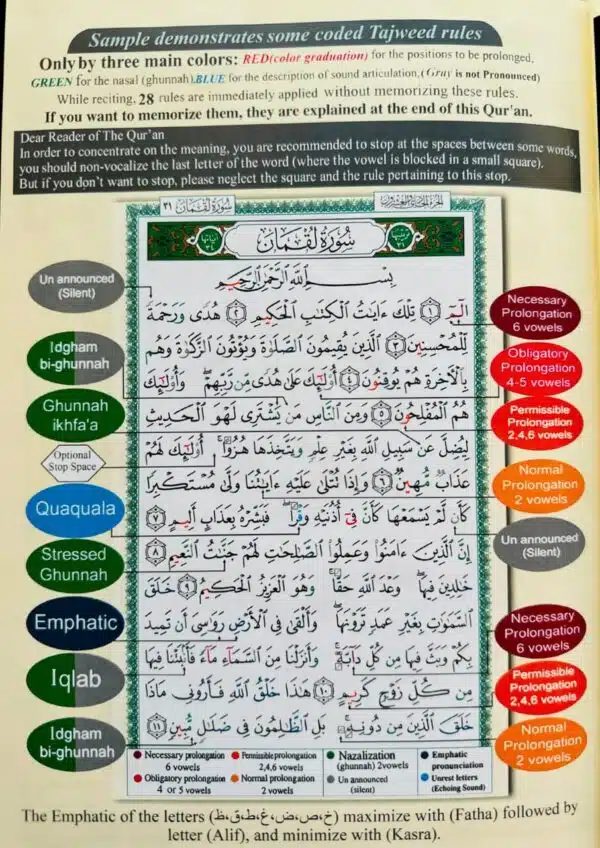 Sample demonstrates some coded Tajweed rules
Only by three main colors: RED(color graduation) for the positions to be prolonged,
GREEN for the nasal (ghunnah),BLUE for the description of sound articulation,(Gray is not Pronounced)
While reciting, 28 rules are immediately applied without memorizing these rules.
If you want to memorize them, they are explained at the end of this Qur'an.
Dear Reader of The Qur'an
In order to concentrate on the meaning, you are recommended to stop at the spaces between some words,
you should non-vocalize the last letter of the word (where the vowel is blocked in a small square).
But if you don't want to stop, please neglect the square and the rule pertaining to this stop.
سُورَةُ لُقْمَان ٣١
سُورَةُ لُقْمَان
بِسْمِ اللَّهِ الرَّحْمَٰنِ الرَّحِيمِ
الٓمٓ ١ تِلْكَ ءَايَٰتُ الْكِتَٰبِ الْحَكِيمِ ٢ هُدًى وَرَحْمَةً
لِّلْمُحْسِنِينَ ٣ الَّذِينَ يُقِيمُونَ الصَّلَوٰةَ وَيُؤْتُونَ الزَّكَوٰةَ وَهُم
بِالْءَاخِرَةِ هُمْ يُوقِنُونَ ٤ أُولَٰٓئِكَ عَلَىٰ هُدًى مِّن رَّبِّهِمْ وَأُولَٰٓئِكَ
هُمُ الْمُفْلِحُونَ ٥ وَمِنَ النَّاسِ مَن يَشْتَرِى لَهْوَ الْحَدِيثِ
لِيُضِلَّ عَن سَبِيلِ اللَّهِ بِغَيْرِ عِلْمٍ وَيَتَّخِذَهَا هُزُوًا أُولَٰٓئِكَ لَهُمْ
عَذَابٌ مُّهِينٌ ٦ وَإِذَا تُتْلَىٰ عَلَيْهِ ءَايَٰتُنَا وَلَّىٰ مُسْتَكْبِرًا
كَأَن لَّمْ يَسْمَعْهَا كَأَنَّ فِىٓ أُذُنَيْهِ وَقْرًا فَبَشِّرْهُ بِعَذَابٍ أَلِيمٍ ٧
إِنَّ الَّذِينَ ءَامَنُوا وَعَمِلُوا الصَّٰلِحَٰتِ لَهُمْ جَنَّٰتُ النَّعِيمِ ٨
خَٰلِدِينَ فِيهَا وَعْدَ اللَّهِ حَقًّا وَهُوَ الْعَزِيزُ الْحَكِيمُ ٩ خَلَقَ
السَّمَٰوَٰتِ بِغَيْرِ عَمَدٍ تَرَوْنَهَا وَأَلْقَىٰ فِى الْأَرْضِ رَوَٰسِىَ أَن تَمِيدَ
بِكُمْ وَبَثَّ فِيهَا مِن كُلِّ دَآبَّةٍ وَأَنزَلْنَا مِنَ السَّمَآءِ مَآءً فَأَنۢبَتْنَا فِيهَا
مِن كُلِّ زَوْجٍ كَرِيمٍ ١٠ هَٰذَا خَلْقُ اللَّهِ فَأَرُونِى مَاذَا
خَلَقَ الَّذِينَ مِن دُونِهِ بَلِ الظَّٰلِمُونَ فِى ضَلَٰلٍ مُّبِينٍ ١١
Un announced
(Silent)
Idgham
bi-ghunnah
Ghunnah
ikhfa'a
Optional
Stop Space
Quaquala
Stressed
Ghunnah
Emphatic
Iqlab
Idgham
bi-ghunnah
Necessary
Prolongation
6 vowels
Obligatory
Prolongation
4-5 vowels
Permissible
Prolongation
2,4,6 vowels
Normal
Prolongation
2 vowels
Un announced
(Silent)
Necessary
Prolongation
6 vowels
Permissible
Prolongation
2,4,6 vowels
Normal
Prolongation
2 vowels
Necessary prolongation
6 vowels
Permissible prolongation
2,4,6 vowels
Nazalization
(ghunnah) 2vowels
Emphatic
pronunciation
Obligatory prolongation
4 or 5 vowels
Normal prolongation
2 vowels
Un announced
(silent)
Unrest letters
(Echoing Sound)
The Emphatic of the letters (خ،ص،ض،غ،ط،ق،ظ) maximize with (Fatha) followed by
letter (Alif), and minimize with (Kasra).